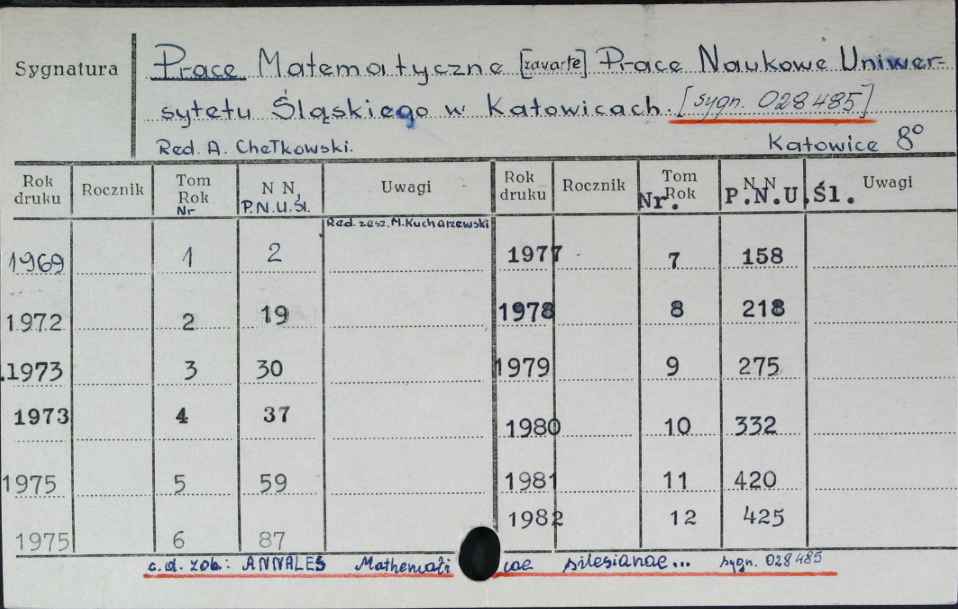 Sygnatura
Prace Matematyczne [zawarte] Prace Naukowe Uniwer-
sytetu Śląskiego w Katowicach. [sygn. 028485]
Red. A. Chełkowski. Katowice 8°
Rok druku Rocznik Tom Rok Nr N N, P.N.U.Śl. Uwagi Rok druku Rocznik Tom Nr. Rok N N P.N.U.Śl. Uwagi
Red. zesz. M. Kucharzewski
1969 1 2 1977 7 158
1972 2 19 1978 8 218
1973 3 30 1979 9 275
1973 4 37 1980 10 332
1975 5 59 1981 11 420
1975 6 87 1982 12 425
c.d. zob: ANNALES Mathemati cae silesianae... sygn. 028485